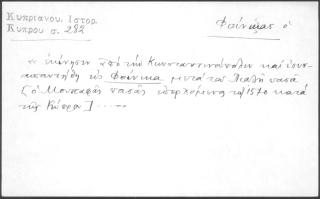 Κυπριανου. Ιστορ.
Κυπρου σ. 282
Φοίνικας ὁ
« ἐκίνησεν ἀπὸ τὴν Κωνσταντινούπολιν καὶ ἐσυν-
απαντήθη εἰς Φοίνικα μετὰ τοῦ Πιαλῆ πασᾶ
[ὁ Μουσταφᾶς πασᾶς ἐπερχόμενος τῷ 1570 κατὰ
τῆς Κύπρου] .....